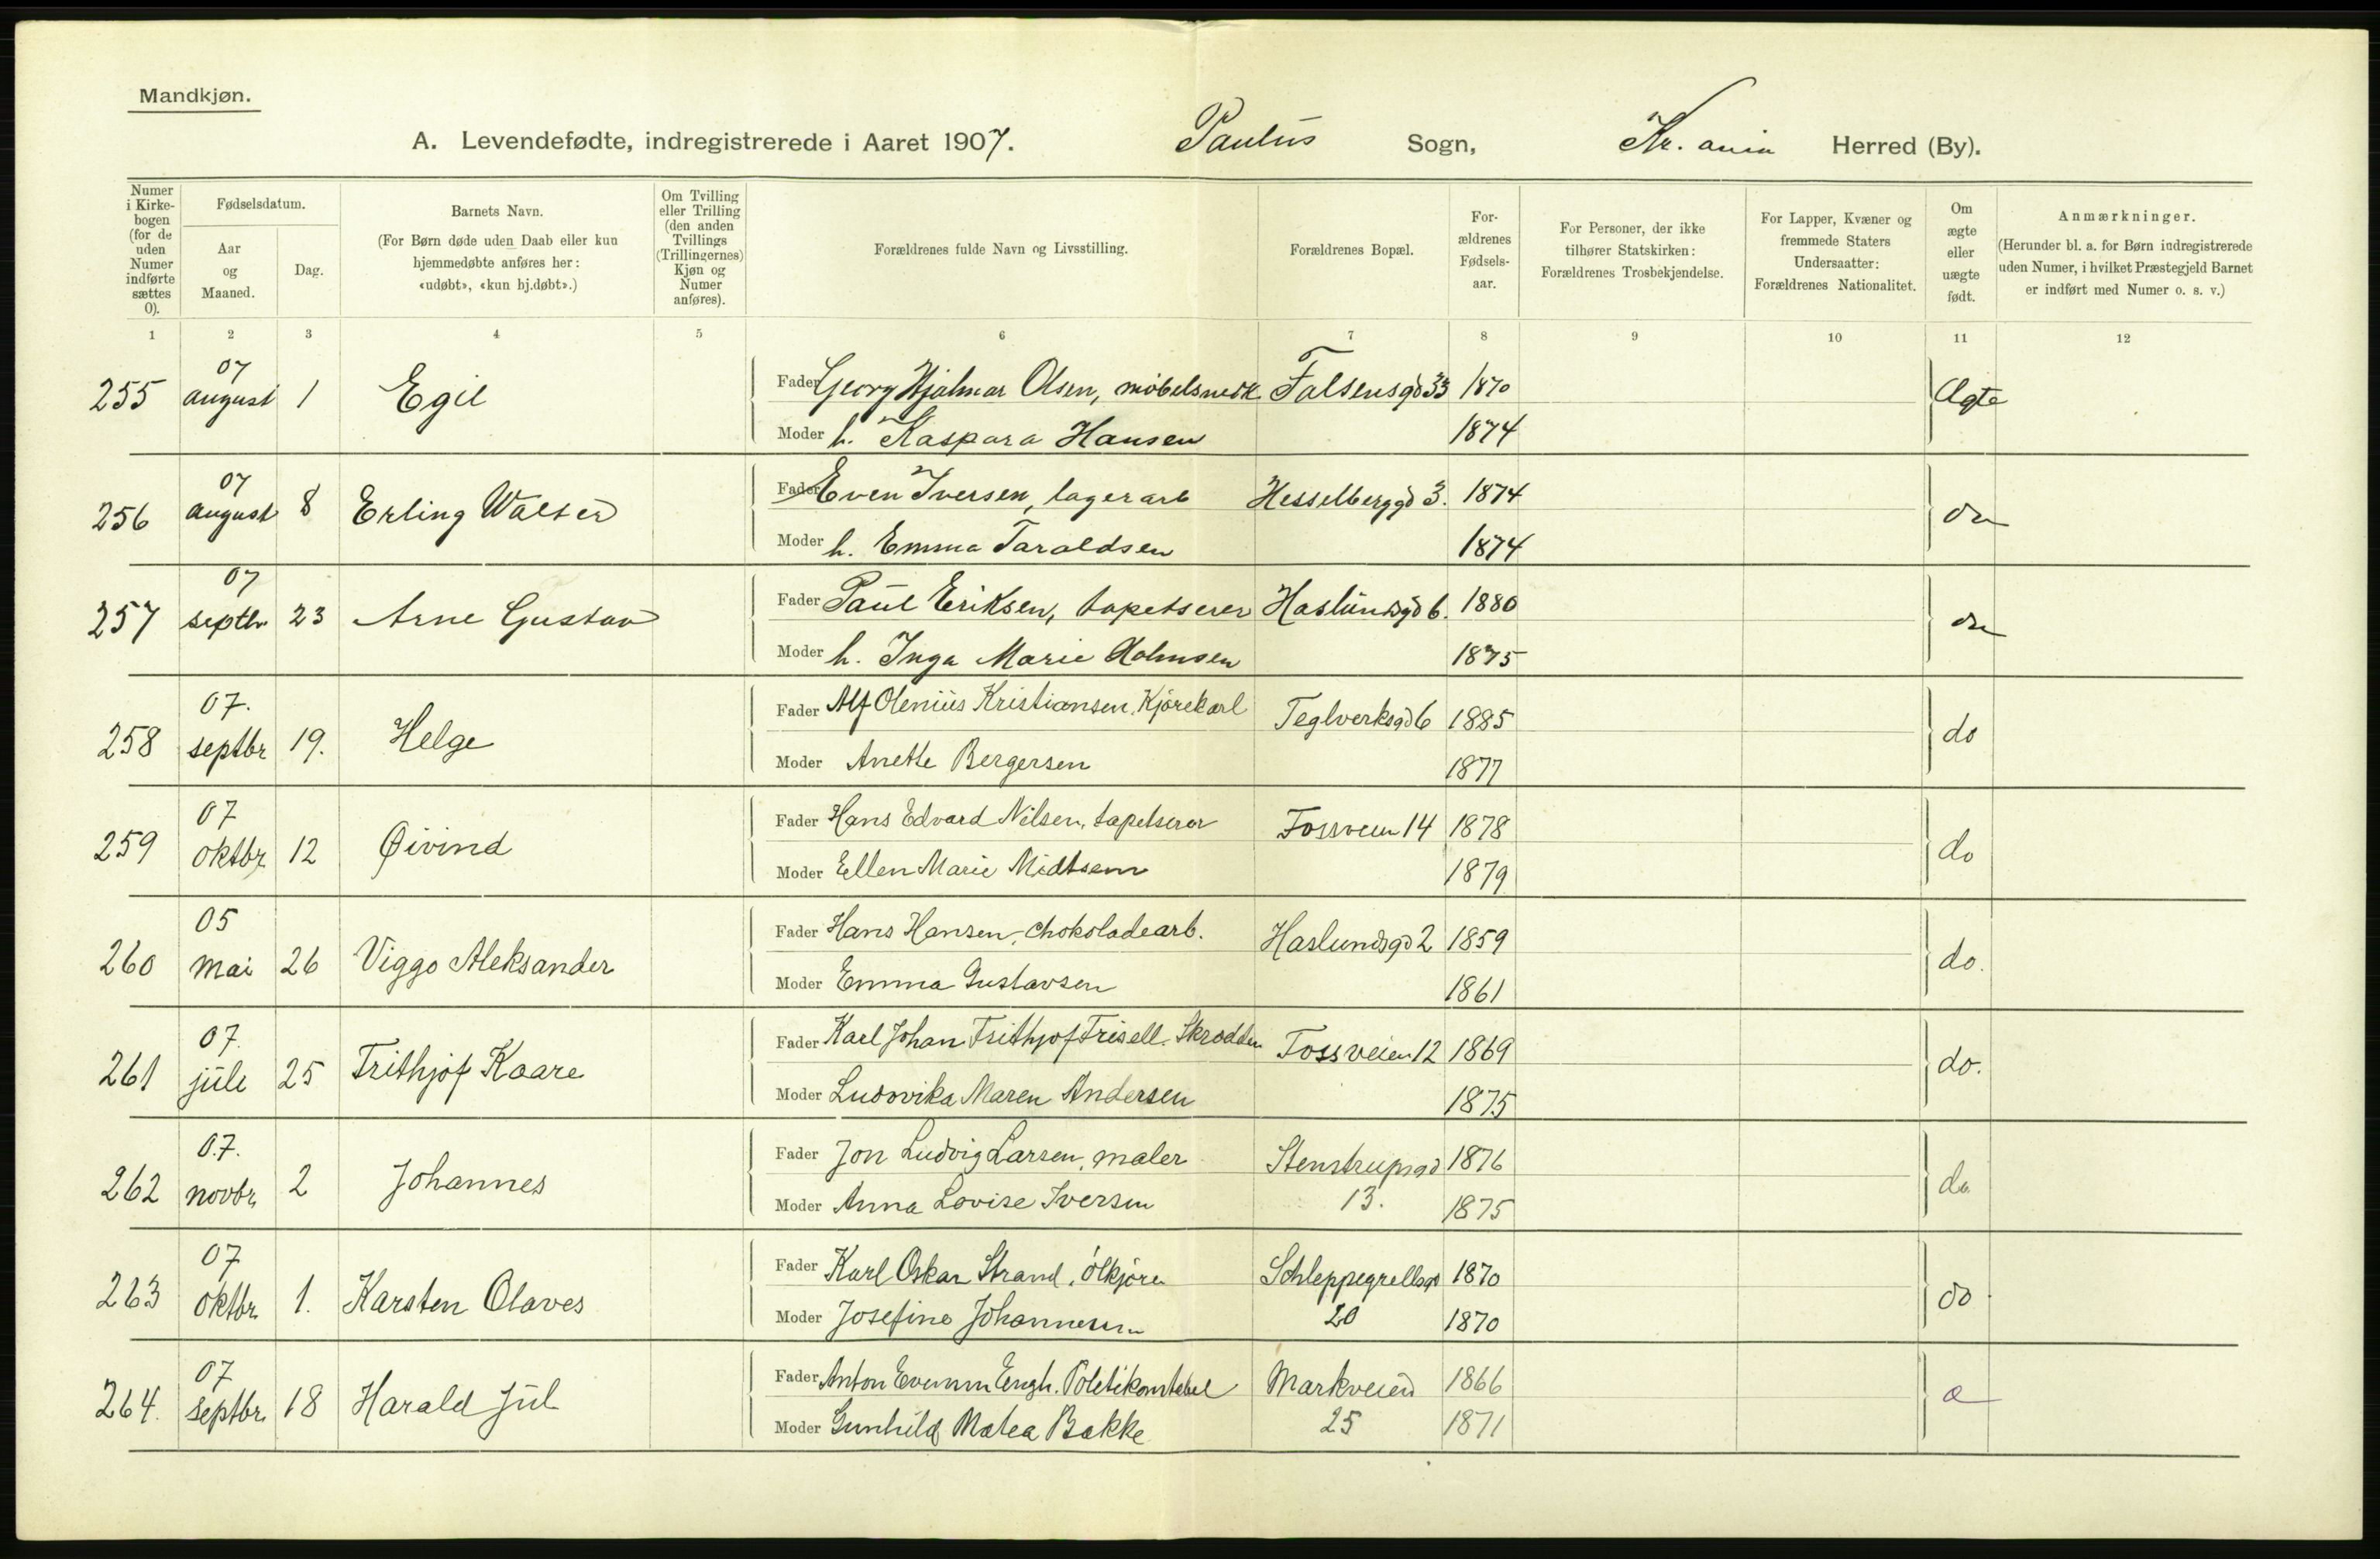 Mandkjøn.
A. Levendefødte, indregistrerede i Aaret 1907. Paulus Sogn, Kr.ania Herred (By).
Numer i Kirkebogen (for de uden Numer indførte sættes 0).
Fødselsdatum.
Aar og Maaned.
Dag.
Barnets Navn.
(For Børn døde uden Daab eller kun hjemmedøbte anføres her: «udøbt», «kun hj.døbt».)
Om Tvilling eller Trilling (den anden Tvillings (Trillingernes) Kjøn og Numer anføres).
Forældrenes fulde Navn og Livsstilling.
Forældrenes Bopæl.
Forældrenes Fødselsaar.
For Personer, der ikke tilhører Statskirken: Forældrenes Trosbekjendelse.
For Lapper, Kvæner og fremmede Staters Undersaatter: Forældrenes Nationalitet.
Om ægte eller uægte født.
Anmærkninger.
(Herunder bl. a. for Børn indregistrerede uden Numer, i hvilket Præstegjeld Barnet er indført med Numer o. s. v.)
1 2 3 4 5 6 7 8 9 10 11 12
255 07 august 1 Egil Fader Georg Hjalmar Olsen, møbelsnedk. Falsensgd 33 1870 Ægte
Moder h. Kaspara Hansen 1874
256 07 august 8 Erling Walter Fader Even Iversen, lagerarb Hesselberggd 3. 1874 do
Moder h. Emma Taraldsen 1874
257 07 septbr 23 Arne Gustav Fader Paul Eriksen, tapetserer Haslundsgd 6. 1880 do
Moder h. Inga Marie Holmsen 1875
258 07. septbr 19. Helge Fader Alf Olenius Kristiansen, Kjørekarl Teglverksgd 6 1885 do
Moder Anette Bergersen 1877
259 07 oktbr 12 Øivind Fader Hans Edvard Nilsen, tapetserer Fossveien 14 1878 do
Moder Ellen Marie Midtsem 1879
260 05 mai 26 Viggo Aleksander Fader Hans Hansen, chokoladearb. Haslundsgd 2 1859 do.
Moder Emma Gustavsen 1861
261 07. juli 25 Frithjof Kaare Fader Karl Johan Frithjof Frisell. Skrædder Fossveien 12 1869 do.
Moder Ludovika Maren Andersen 1875
262 07. novbr. 2 Johannes Fader Jon Ludvig Larsen, maler Stenstrupsgd 1876 do
Moder Anna Lovise Iversen 13. 1875
263 07 oktbr. 1. Karsten Olaves Fader Karl Oskar Strand, ølkjører Schleppegrellsgd 1870 do
Moder Josefine Johannesen 20 1870
264. 07 septbr. 18 Harald Jul Fader Anton Engh. Politikonstabel Markveien 1866 æ
Moder Gunhild Matea Bakke 25 1871